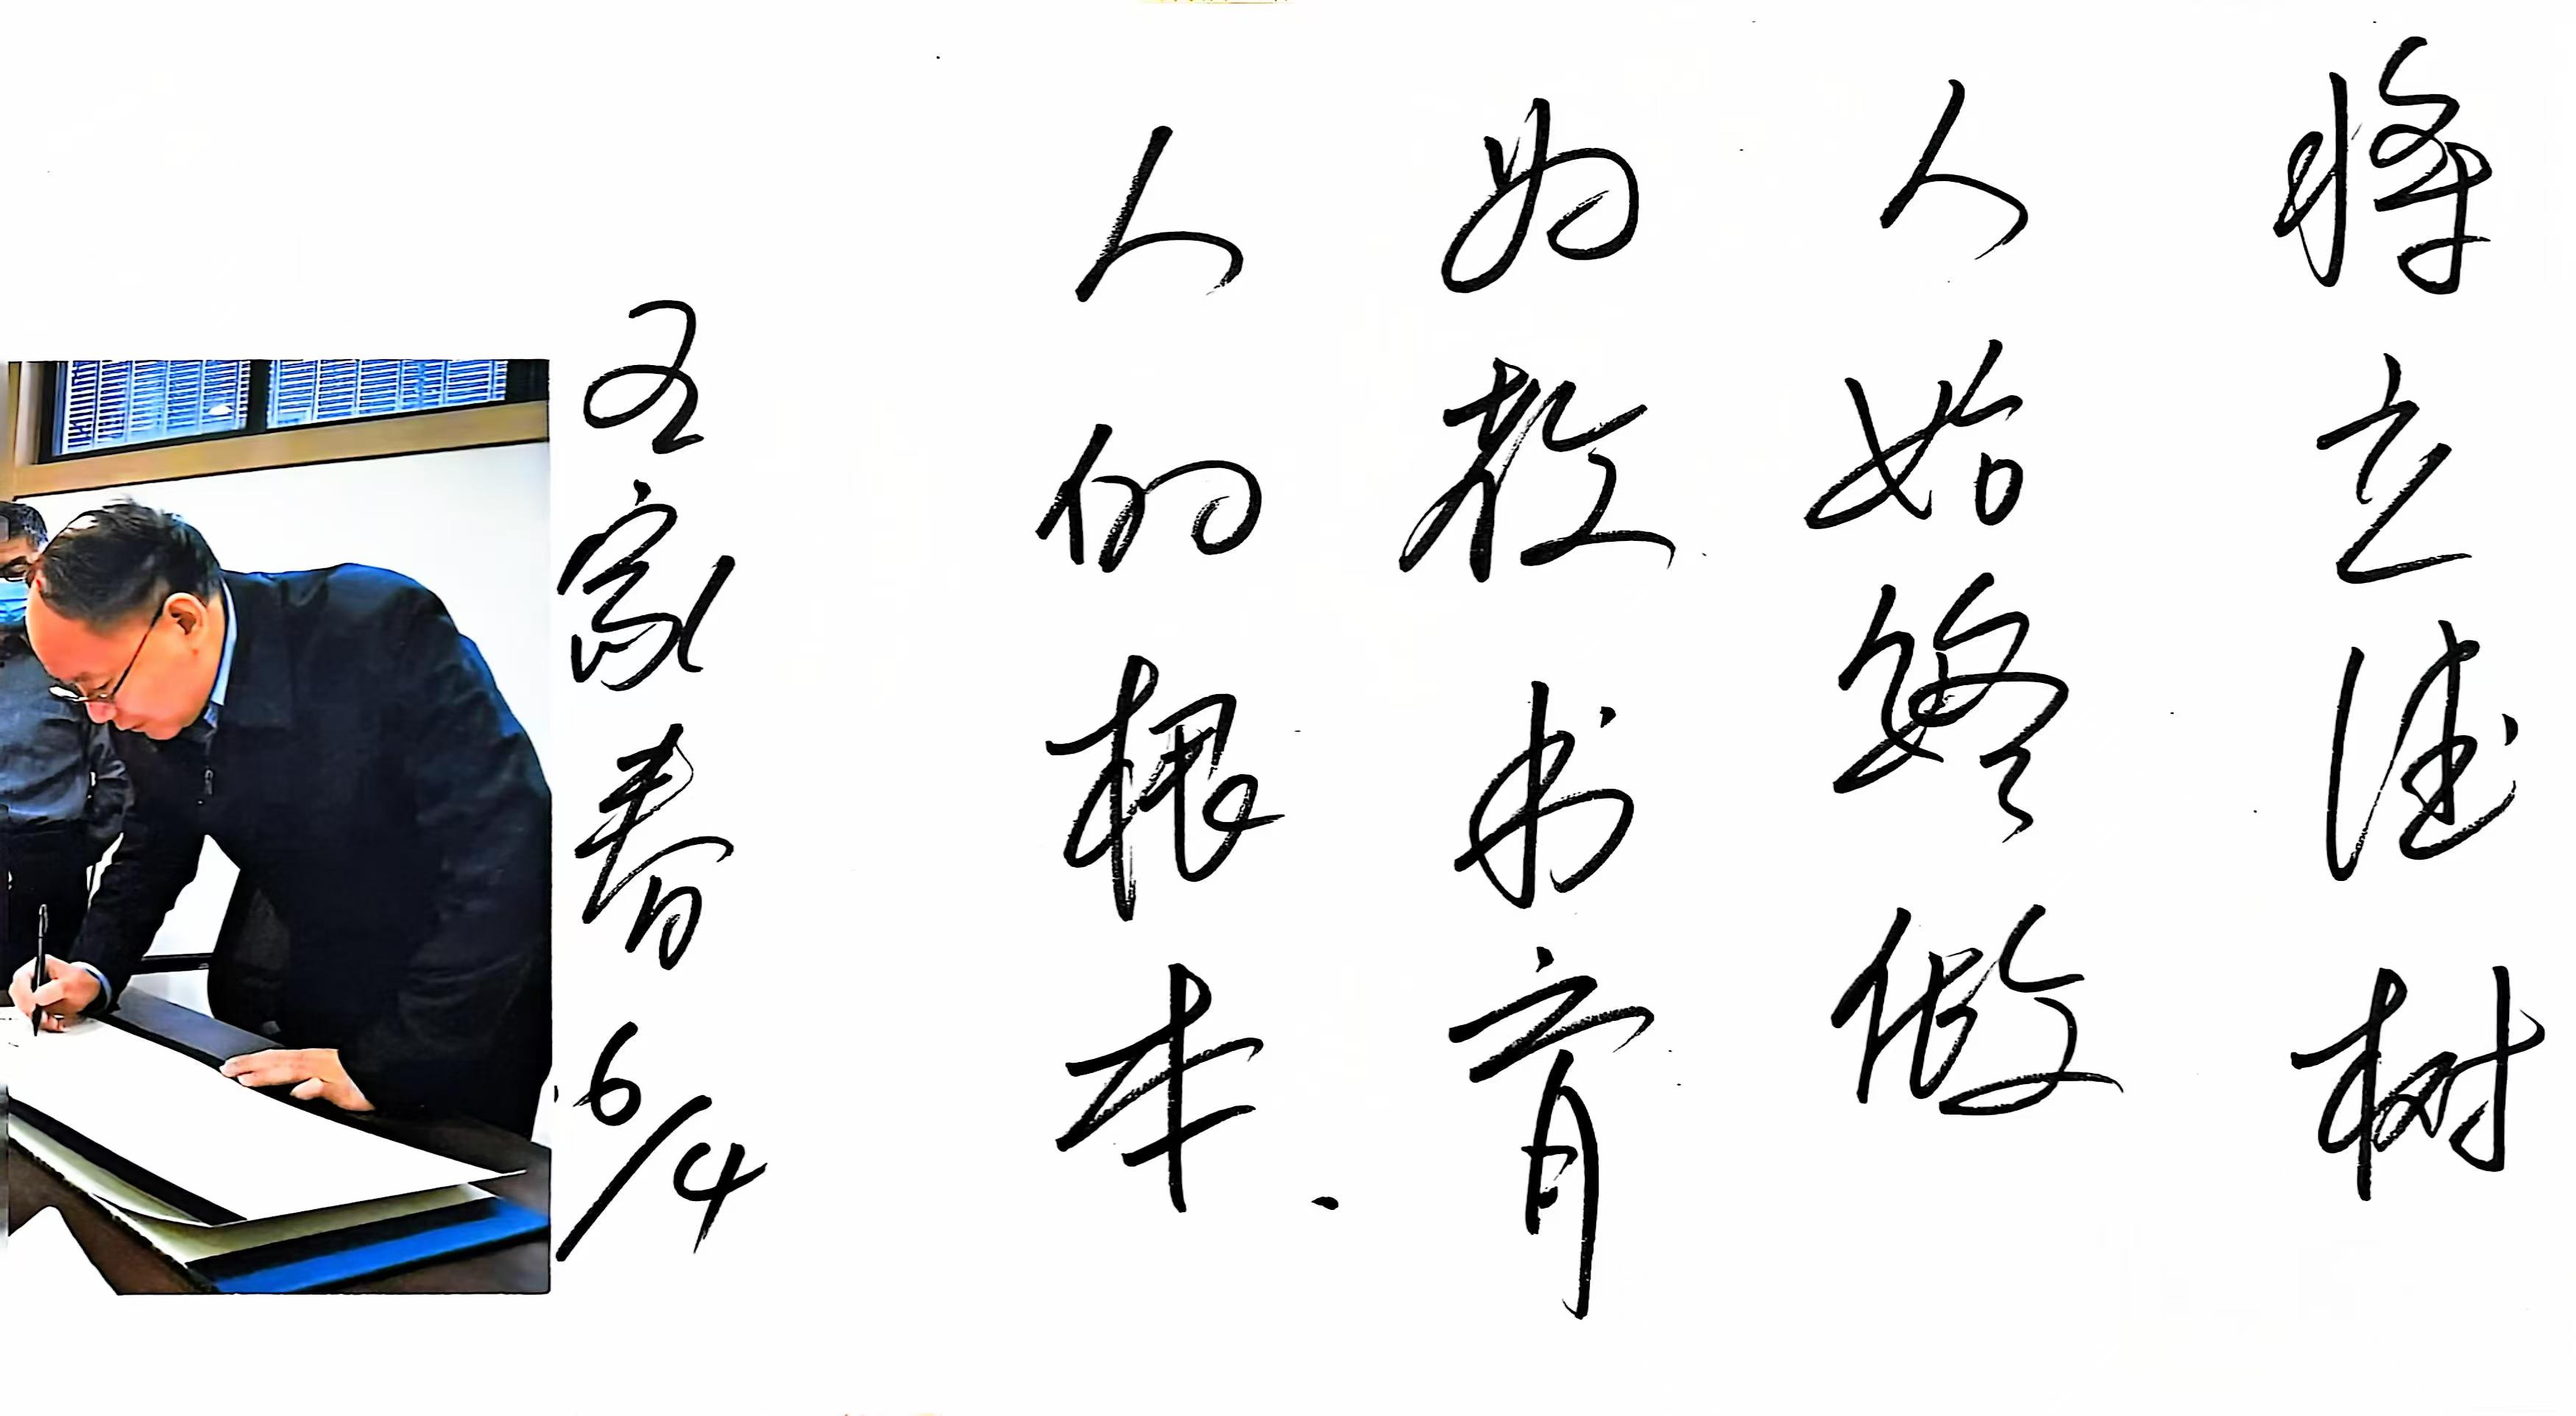 将立德树
人始终做
为教书育
人的根本.
王家春
6/4